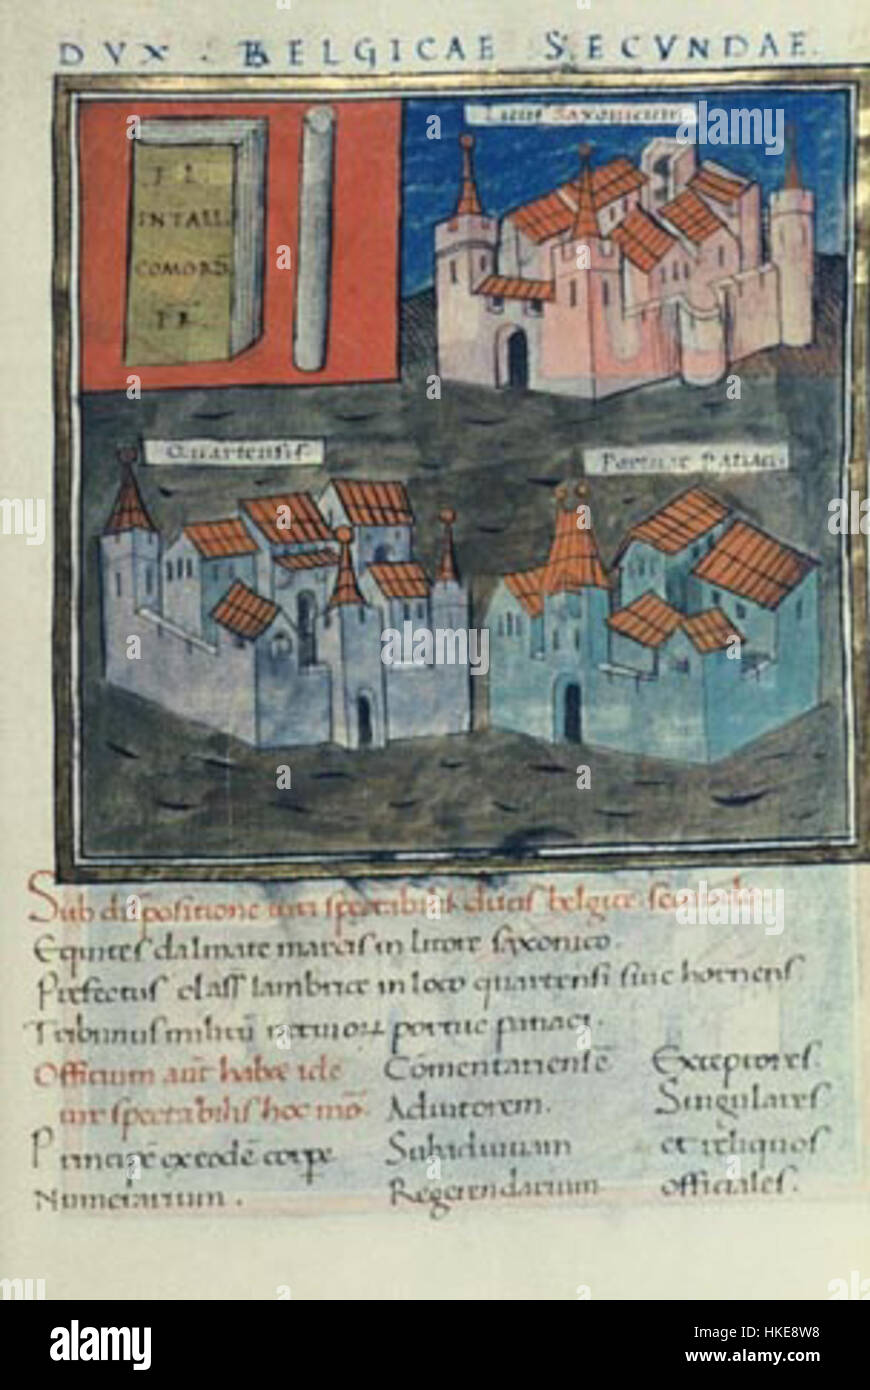 DVX · BELGICAE SECVNDAE.
FL
INTALL
COMORD
PR
Litus Saxonicum
Quartensis
Portuae Patiaci
Sub dispositione uiri spectabilis ducis belgice secunde.
Equites dalmate marcis in litore saxonico.
Prefectus class sambrice in loco quartensi siue hornensi
Tribunus militũ neruiorꝝ portue patiaci.
Officium aut habet ide
uir spectabilis hoc mõ.
Principẽ ex eodẽ corpe
Numerarium.
Cõmentariensẽ
Adiutorem.
Subadiuuam
Regerendarium
Exceptores.
Singulares
et reliquos
officiales.
alamy
Image ID: HKE8W8
www.alamy.com